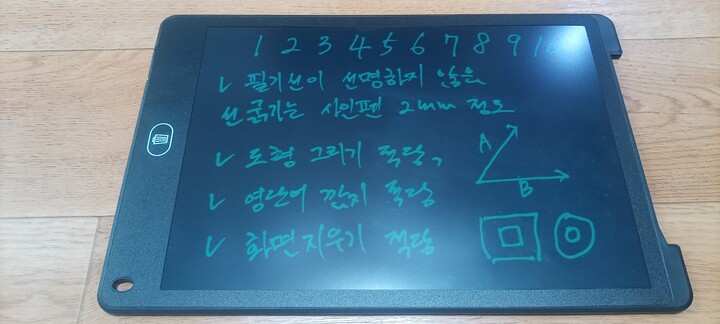 1 2 3 4 5 6 7 8 9 10
✓ 필기선이 선명하지 않음
선굵기는 사인펜 2mm 정도
✓ 도형 그리기 적당,
✓ 영단어 깜지 적당
✓ 화면지우기 적당
A
B